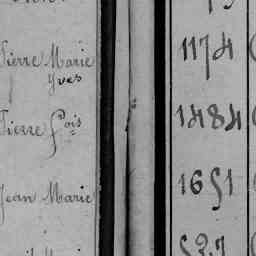 Pierre Marie
Yves
1174
Pierre Fois
1484
Jean Marie
1651